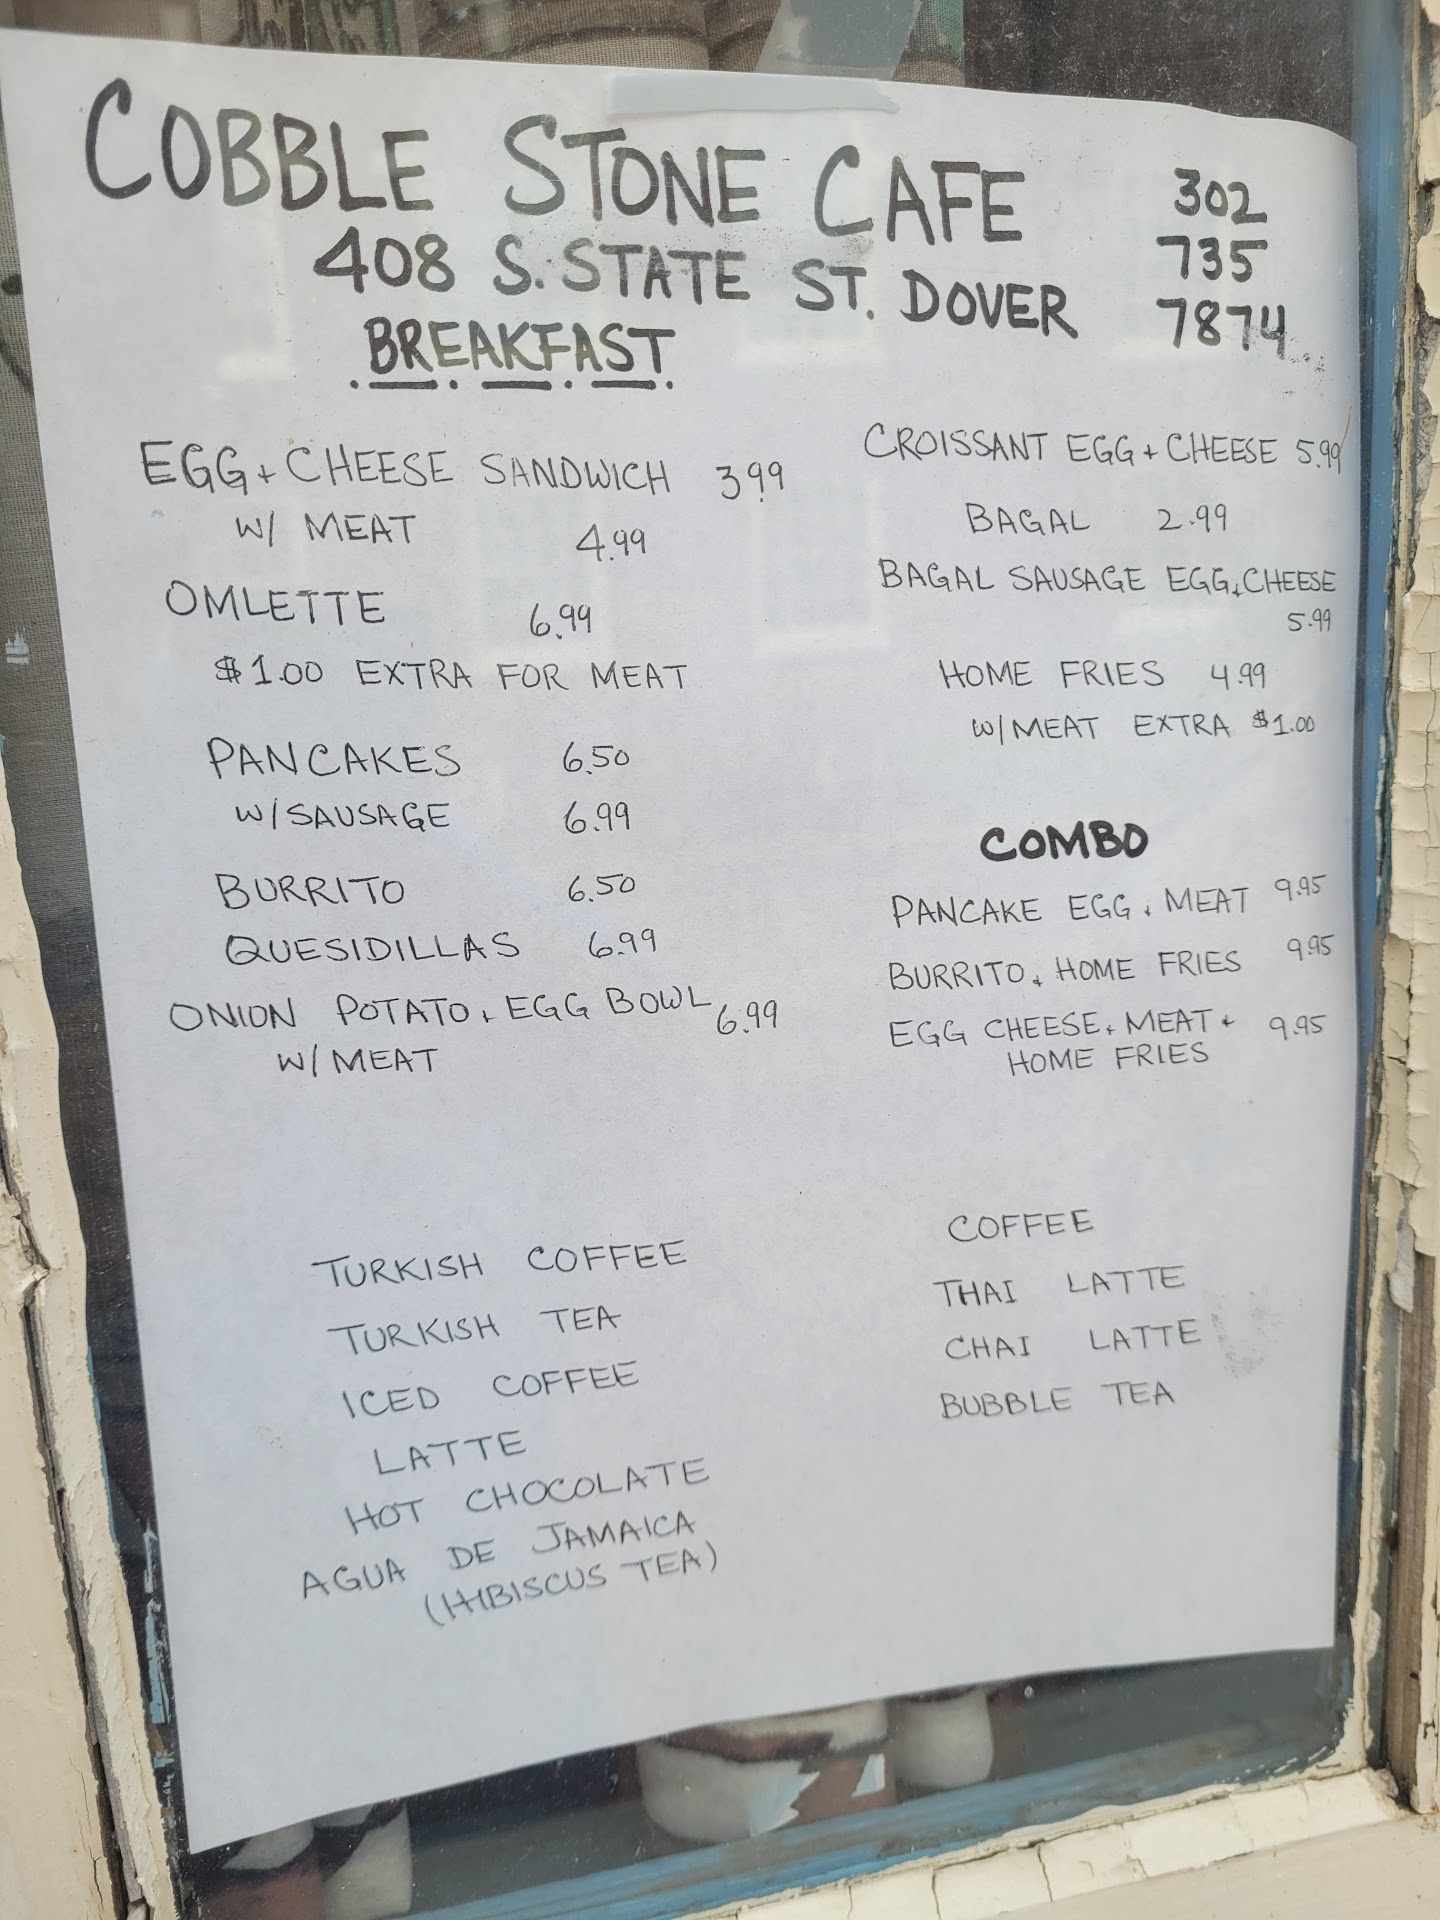 COBBLE STONE CAFE
408 S. STATE ST. DOVER
302
735
7874
BREAKFAST
EGG + CHEESE SANDWICH 3.99
W/ MEAT 4.99
OMLETTE 6.99
$1.00 EXTRA FOR MEAT
PANCAKES 6.50
W/SAUSAGE 6.99
BURRITO 6.50
QUESIDILLAS 6.99
ONION POTATO + EGG BOWL 6.99
W/ MEAT
CROISSANT EGG + CHEESE 5.99
BAGAL 2.99
BAGAL SAUSAGE EGG + CHEESE
5.99
HOME FRIES 4.99
W/MEAT EXTRA $1.00
COMBO
PANCAKE EGG + MEAT 9.95
BURRITO + HOME FRIES 9.95
EGG CHEESE + MEAT + 9.95
HOME FRIES
TURKISH COFFEE
TURKISH TEA
ICED COFFEE
LATTE
HOT CHOCOLATE
AGUA DE JAMAICA
(HIBISCUS TEA)
COFFEE
THAI LATTE
CHAI LATTE
BUBBLE TEA